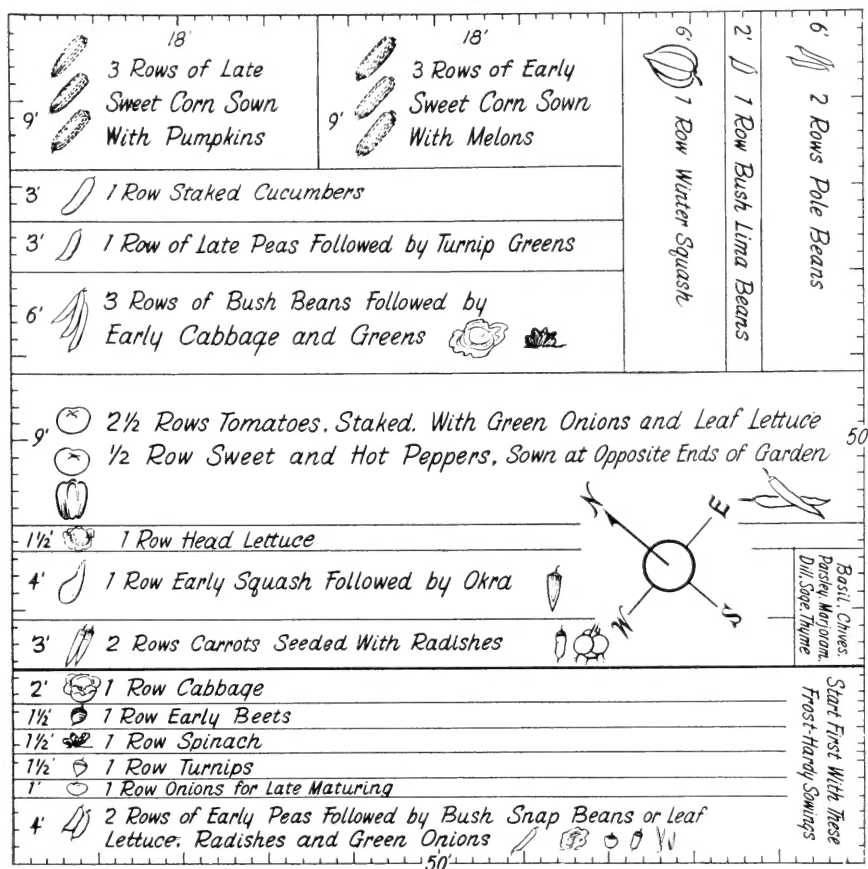 18'
3 Rows of Late
Sweet Corn Sown
With Pumpkins
9'
18'
3 Rows of Early
Sweet Corn Sown
With Melons
9'
6'
1 Row Winter Squash
2'
1 Row Bush Lima Beans
6'
2 Rows Pole Beans
3' 1 Row Staked Cucumbers
3' 1 Row of Late Peas Followed by Turnip Greens
6' 3 Rows of Bush Beans Followed by
Early Cabbage and Greens
9' 2½ Rows Tomatoes, Staked. With Green Onions and Leaf Lettuce
½ Row Sweet and Hot Peppers, Sown at Opposite Ends of Garden
50'
1½' 1 Row Head Lettuce
4' 1 Row Early Squash Followed by Okra
3' 2 Rows Carrots Seeded With Radishes
N
E
W
S
Basil, Chives,
Parsley, Marjoram,
Dill, Sage, Thyme
2' 1 Row Cabbage
1½' 1 Row Early Beets
1½' 1 Row Spinach
1½' 1 Row Turnips
1' 1 Row Onions for Late Maturing
4' 2 Rows of Early Peas Followed by Bush Snap Beans or Leaf
Lettuce, Radishes and Green Onions
Start First With These
Frost-Hardy Sowings
50'